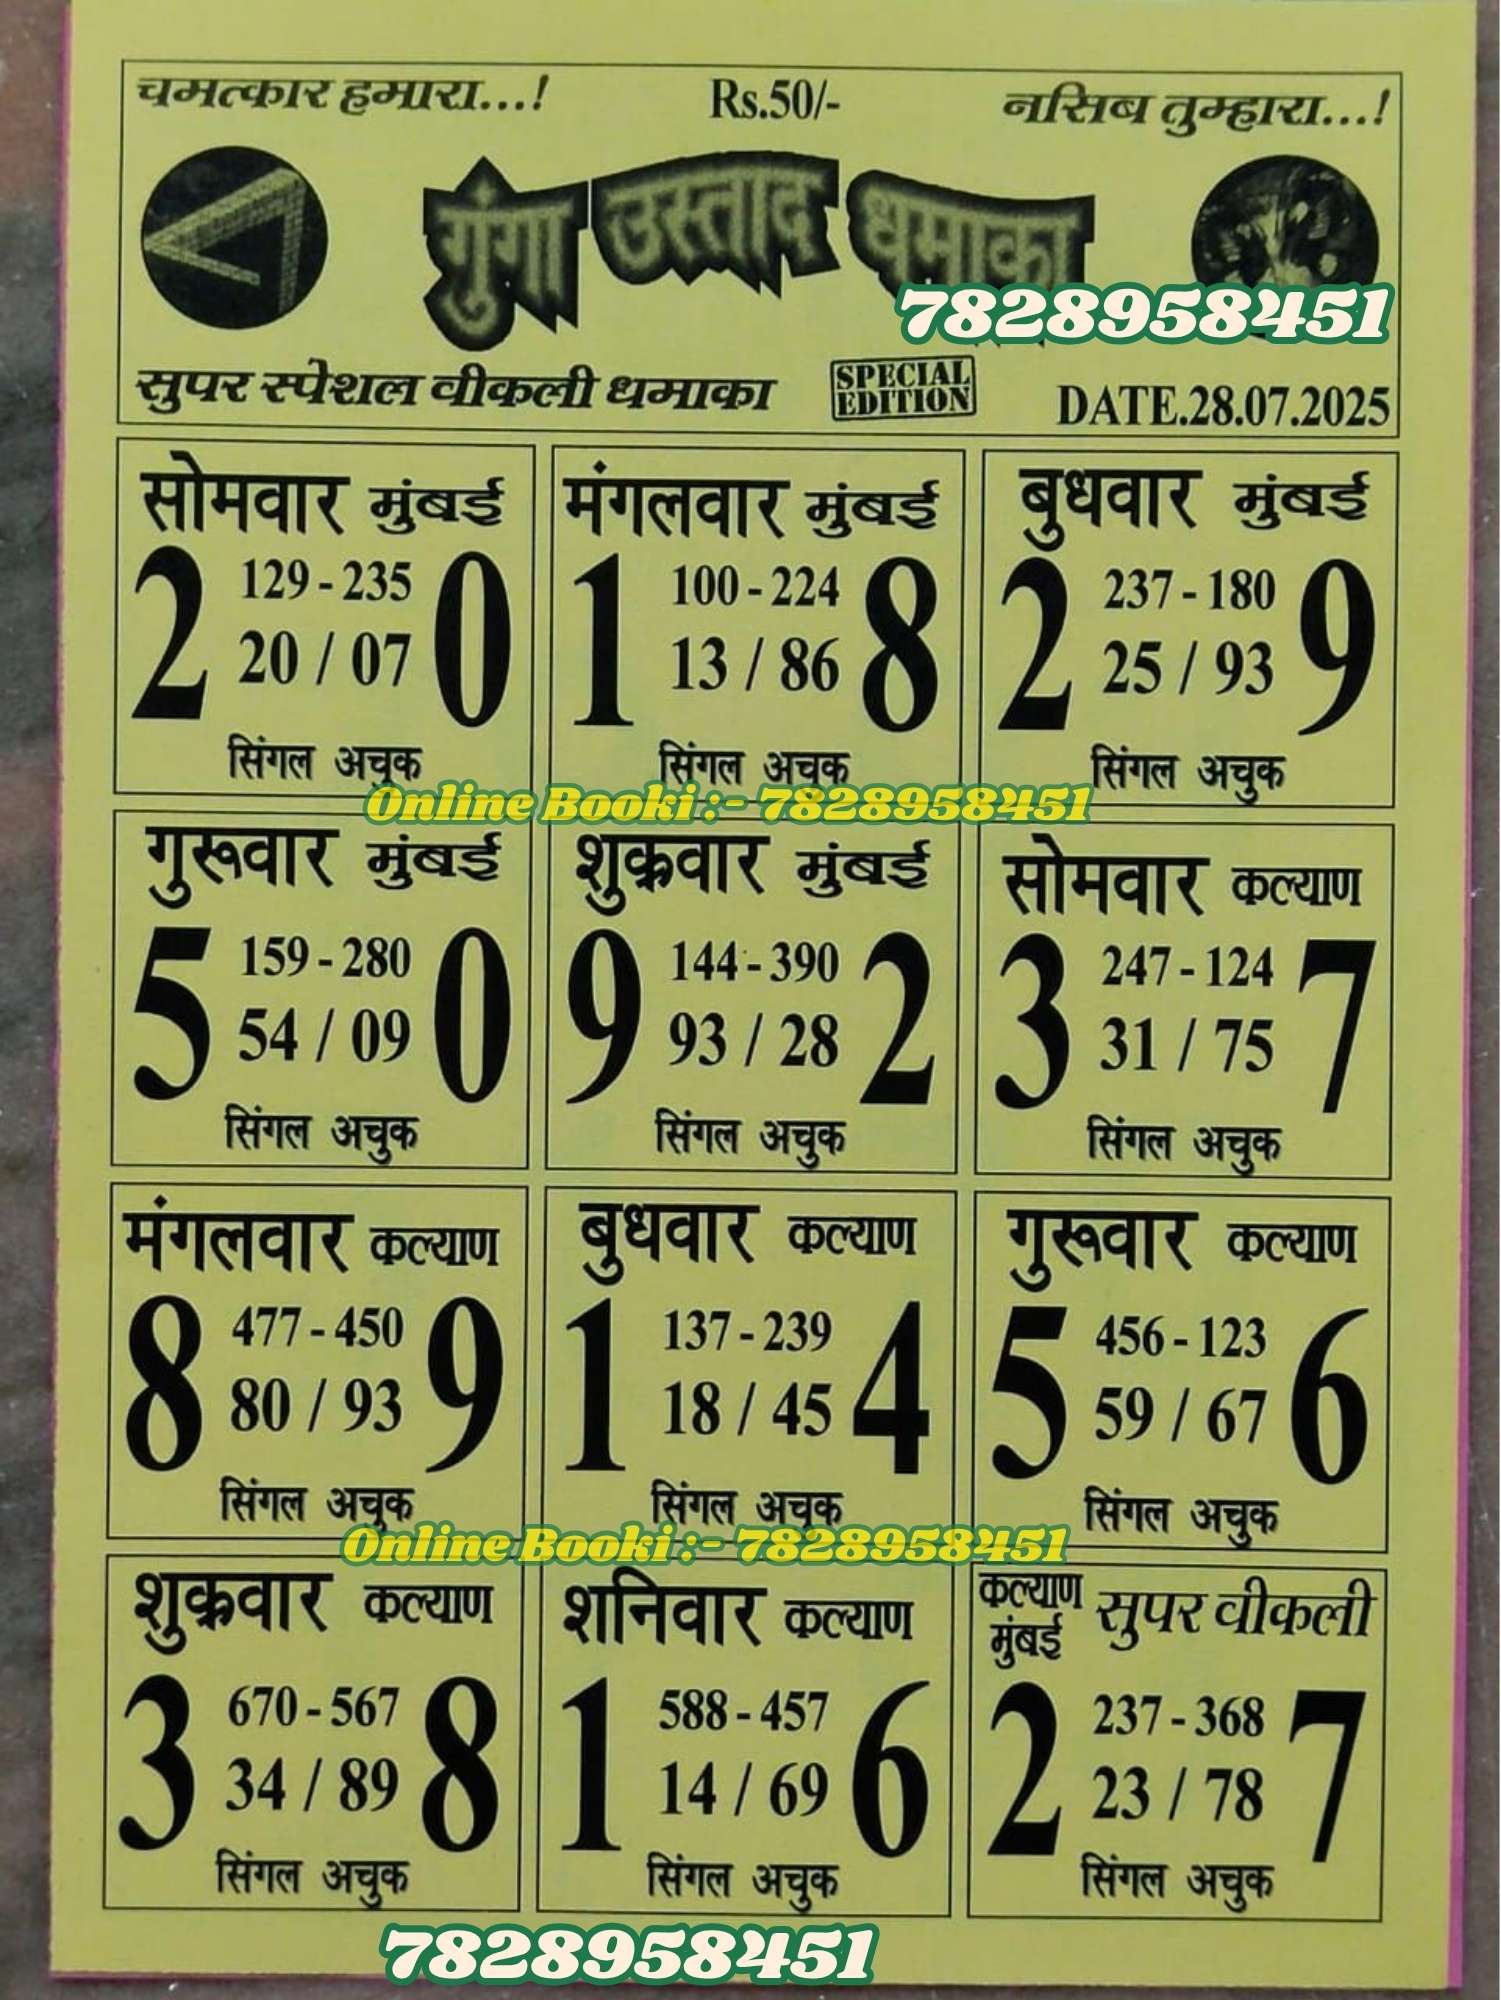 चमत्कार हमारा...! Rs.50/- नसिब तुम्हारा...!
गुंगा उस्ताद धमाका
7828958451
सुपर स्पेशल वीकली धमाका SPECIAL EDITION DATE.28.07.2025
सोमवार मुंबई
129 - 235
2 20 / 07 0
सिंगल अचुक
मंगलवार मुंबई
100 - 224
1 13 / 86 8
सिंगल अचुक
बुधवार मुंबई
237 - 180
2 25 / 93 9
सिंगल अचुक
Online Booki :- 7828958451
गुरूवार मुंबई
159 - 280
5 54 / 09 0
सिंगल अचुक
शुक्रवार मुंबई
144 - 390
9 93 / 28 2
सिंगल अचुक
सोमवार कल्याण
247 - 124
3 31 / 75 7
सिंगल अचुक
मंगलवार कल्याण
477 - 450
8 80 / 93 9
सिंगल अचुक
बुधवार कल्याण
137 - 239
1 18 / 45 4
सिंगल अचुक
गुरूवार कल्याण
456 - 123
5 59 / 67 6
सिंगल अचुक
Online Booki :- 7828958451
शुक्रवार कल्याण
670 - 567
3 34 / 89 8
सिंगल अचुक
शनिवार कल्याण
588 - 457
1 14 / 69 6
सिंगल अचुक
कल्याण मुंबई सुपर वीकली
237 - 368
2 23 / 78 7
सिंगल अचुक
7828958451